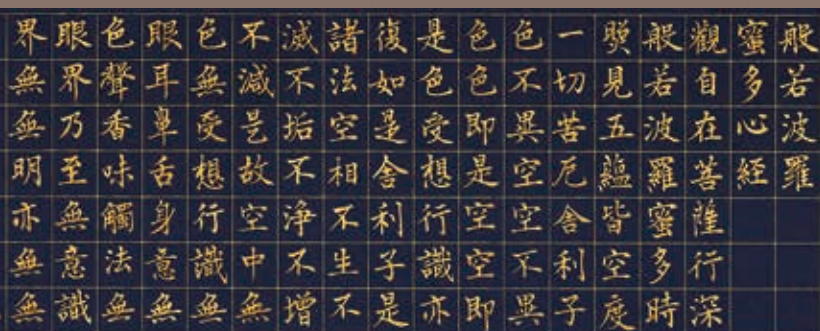 般若波羅
蜜多心經
觀自在菩薩行深
般若波羅蜜多時
照見五蘊皆空度
一切苦厄舍利子
色不異空空不異
色色即是空空即
是色受想行識亦
復如是舍利子是
諸法空相不生不
滅不垢不淨不增
不減是故空中無
色無受想行識無
眼耳鼻舌身意無
色聲香味觸法無
眼界乃至無意識
界無無明亦無無